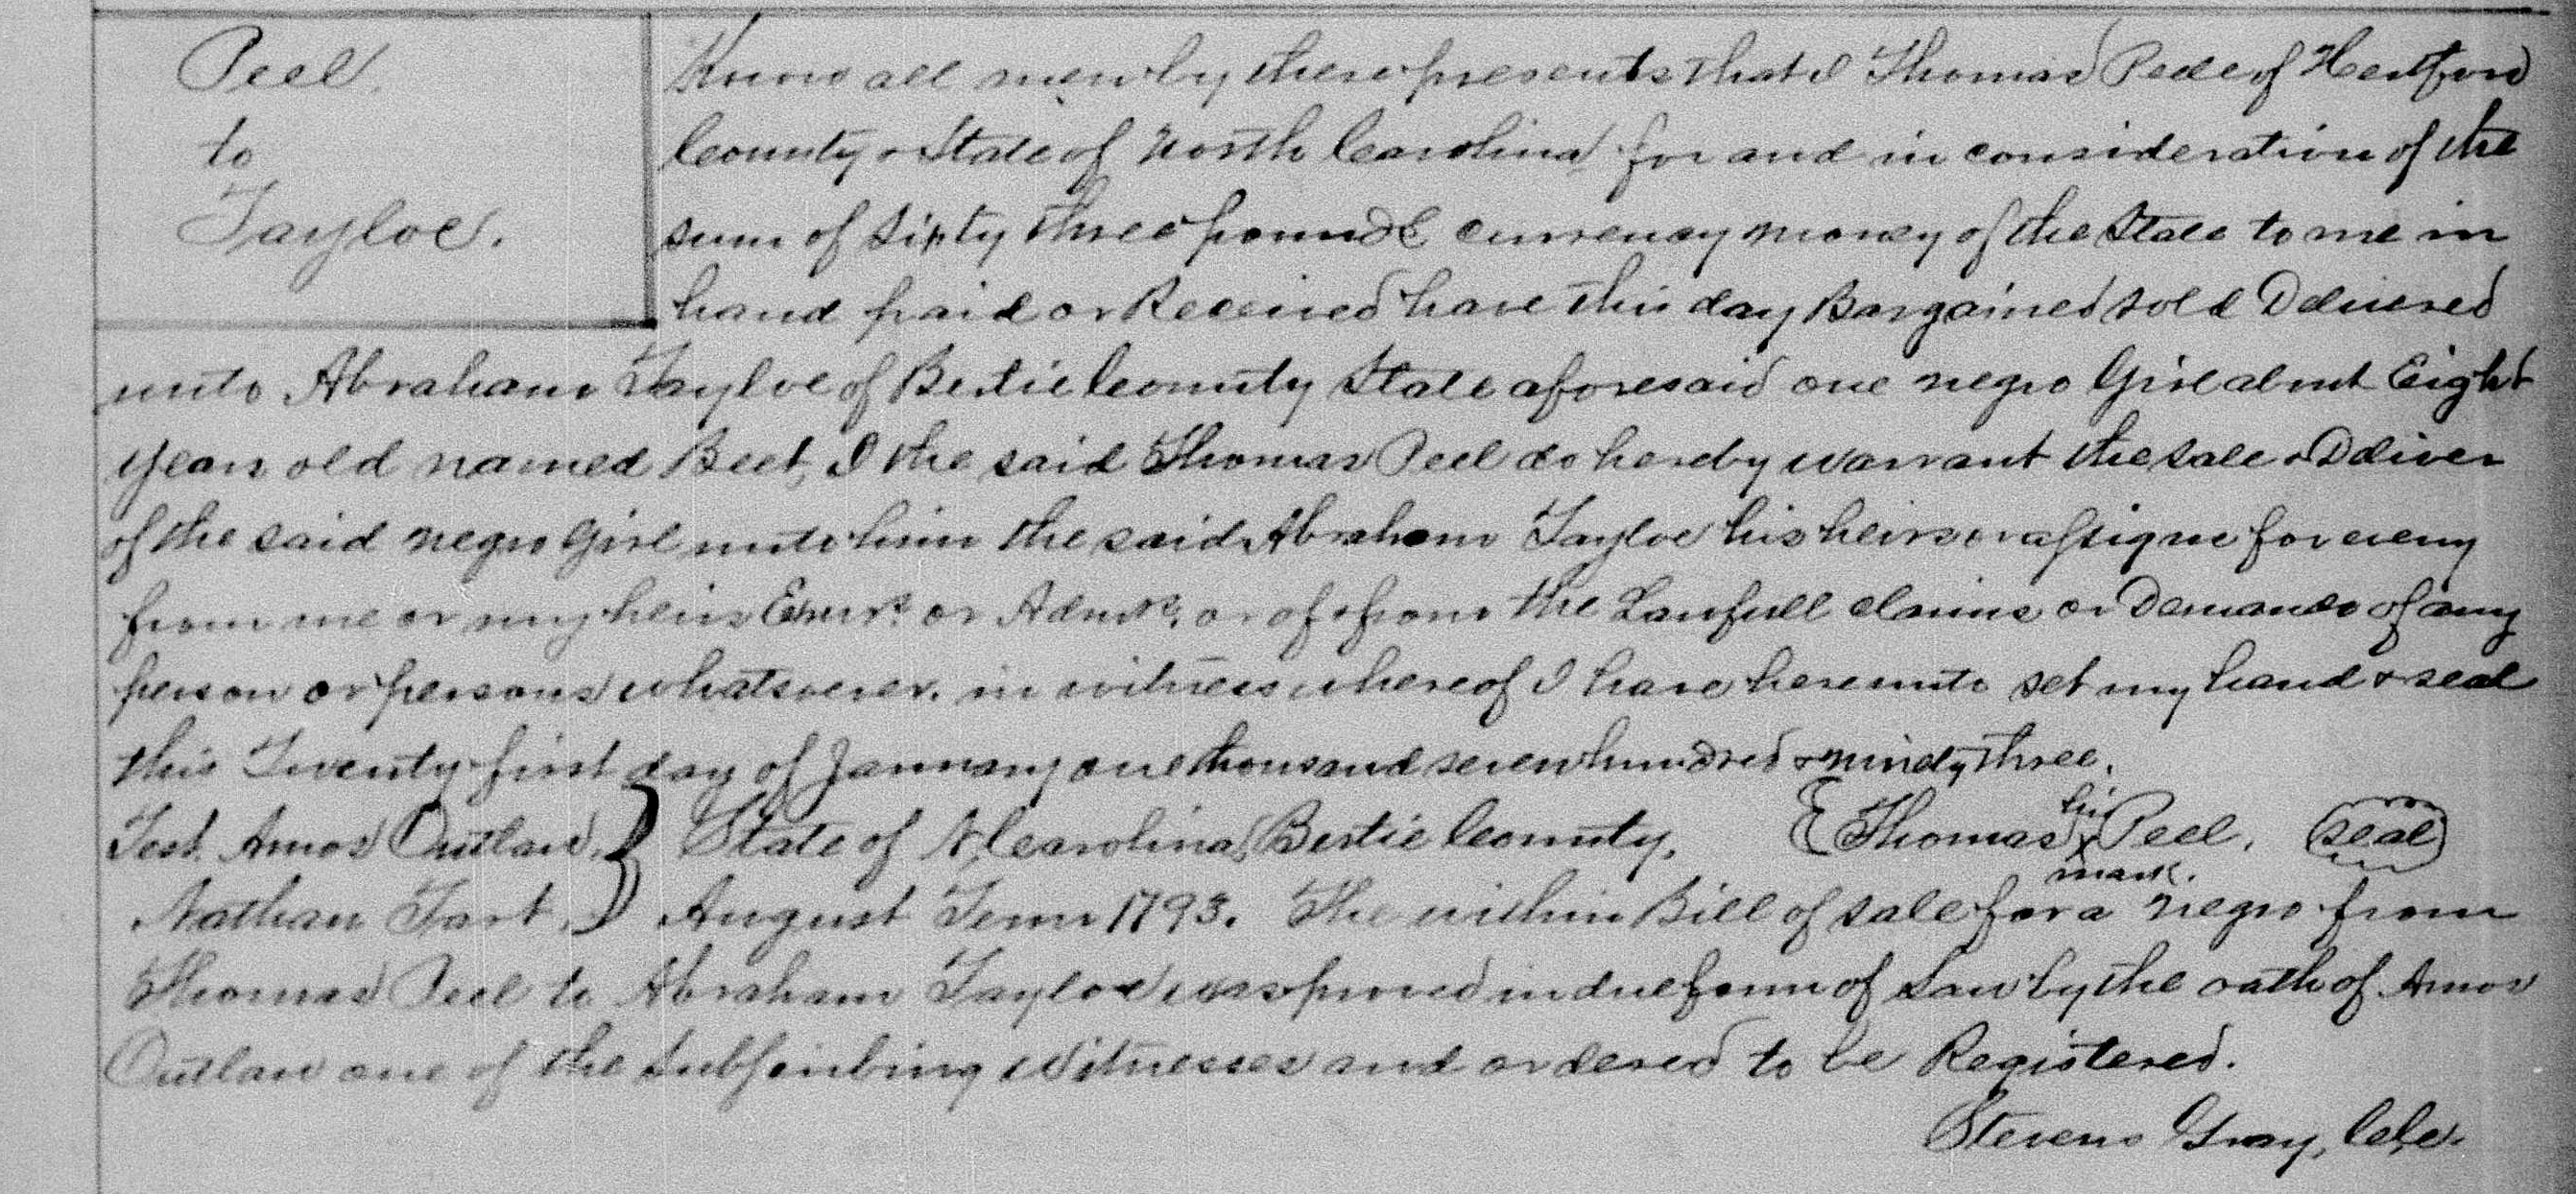 Peel
to
Tayloe.
Know all men by these presents that I Thomas Peele of Hertford
County & State of North Carolina for and in consideration of the
sum of Sixty three pounds currency money of the State to me in
hand paid or Received have this day Bargained sold Delivered
unto Abraham Tayloe of Bertie County State aforesaid one negro Girl about Eight
years old named Beet, I the said Thomas Peel do hereby warrant the sale & Deliver
of the said negro Girl unto him the said Abraham Tayloe his heirs or assigne for eveny
from me or my heirs Exurs. or Admrs. or of from the Lawfull claims or Demands of any
person or persons whatsoever. in witness whereof I have hereunto set my hand & seal
this Twenty first day of January one thousand seven hundred & ninety three.
Test. Amos Outlaw, State of N. Carolina, Bertie County, Thomas his x mark. Peel. seal
Nathan Tart, August Term 1793. The within Bill of sale for a negro from
Thomas Peel to Abraham Tayloe was proved in due form of Law by the oath of Amos
Outlaw one of the Subscribing witnesses and ordered to be Registered.
Stevens Gray, ClC.